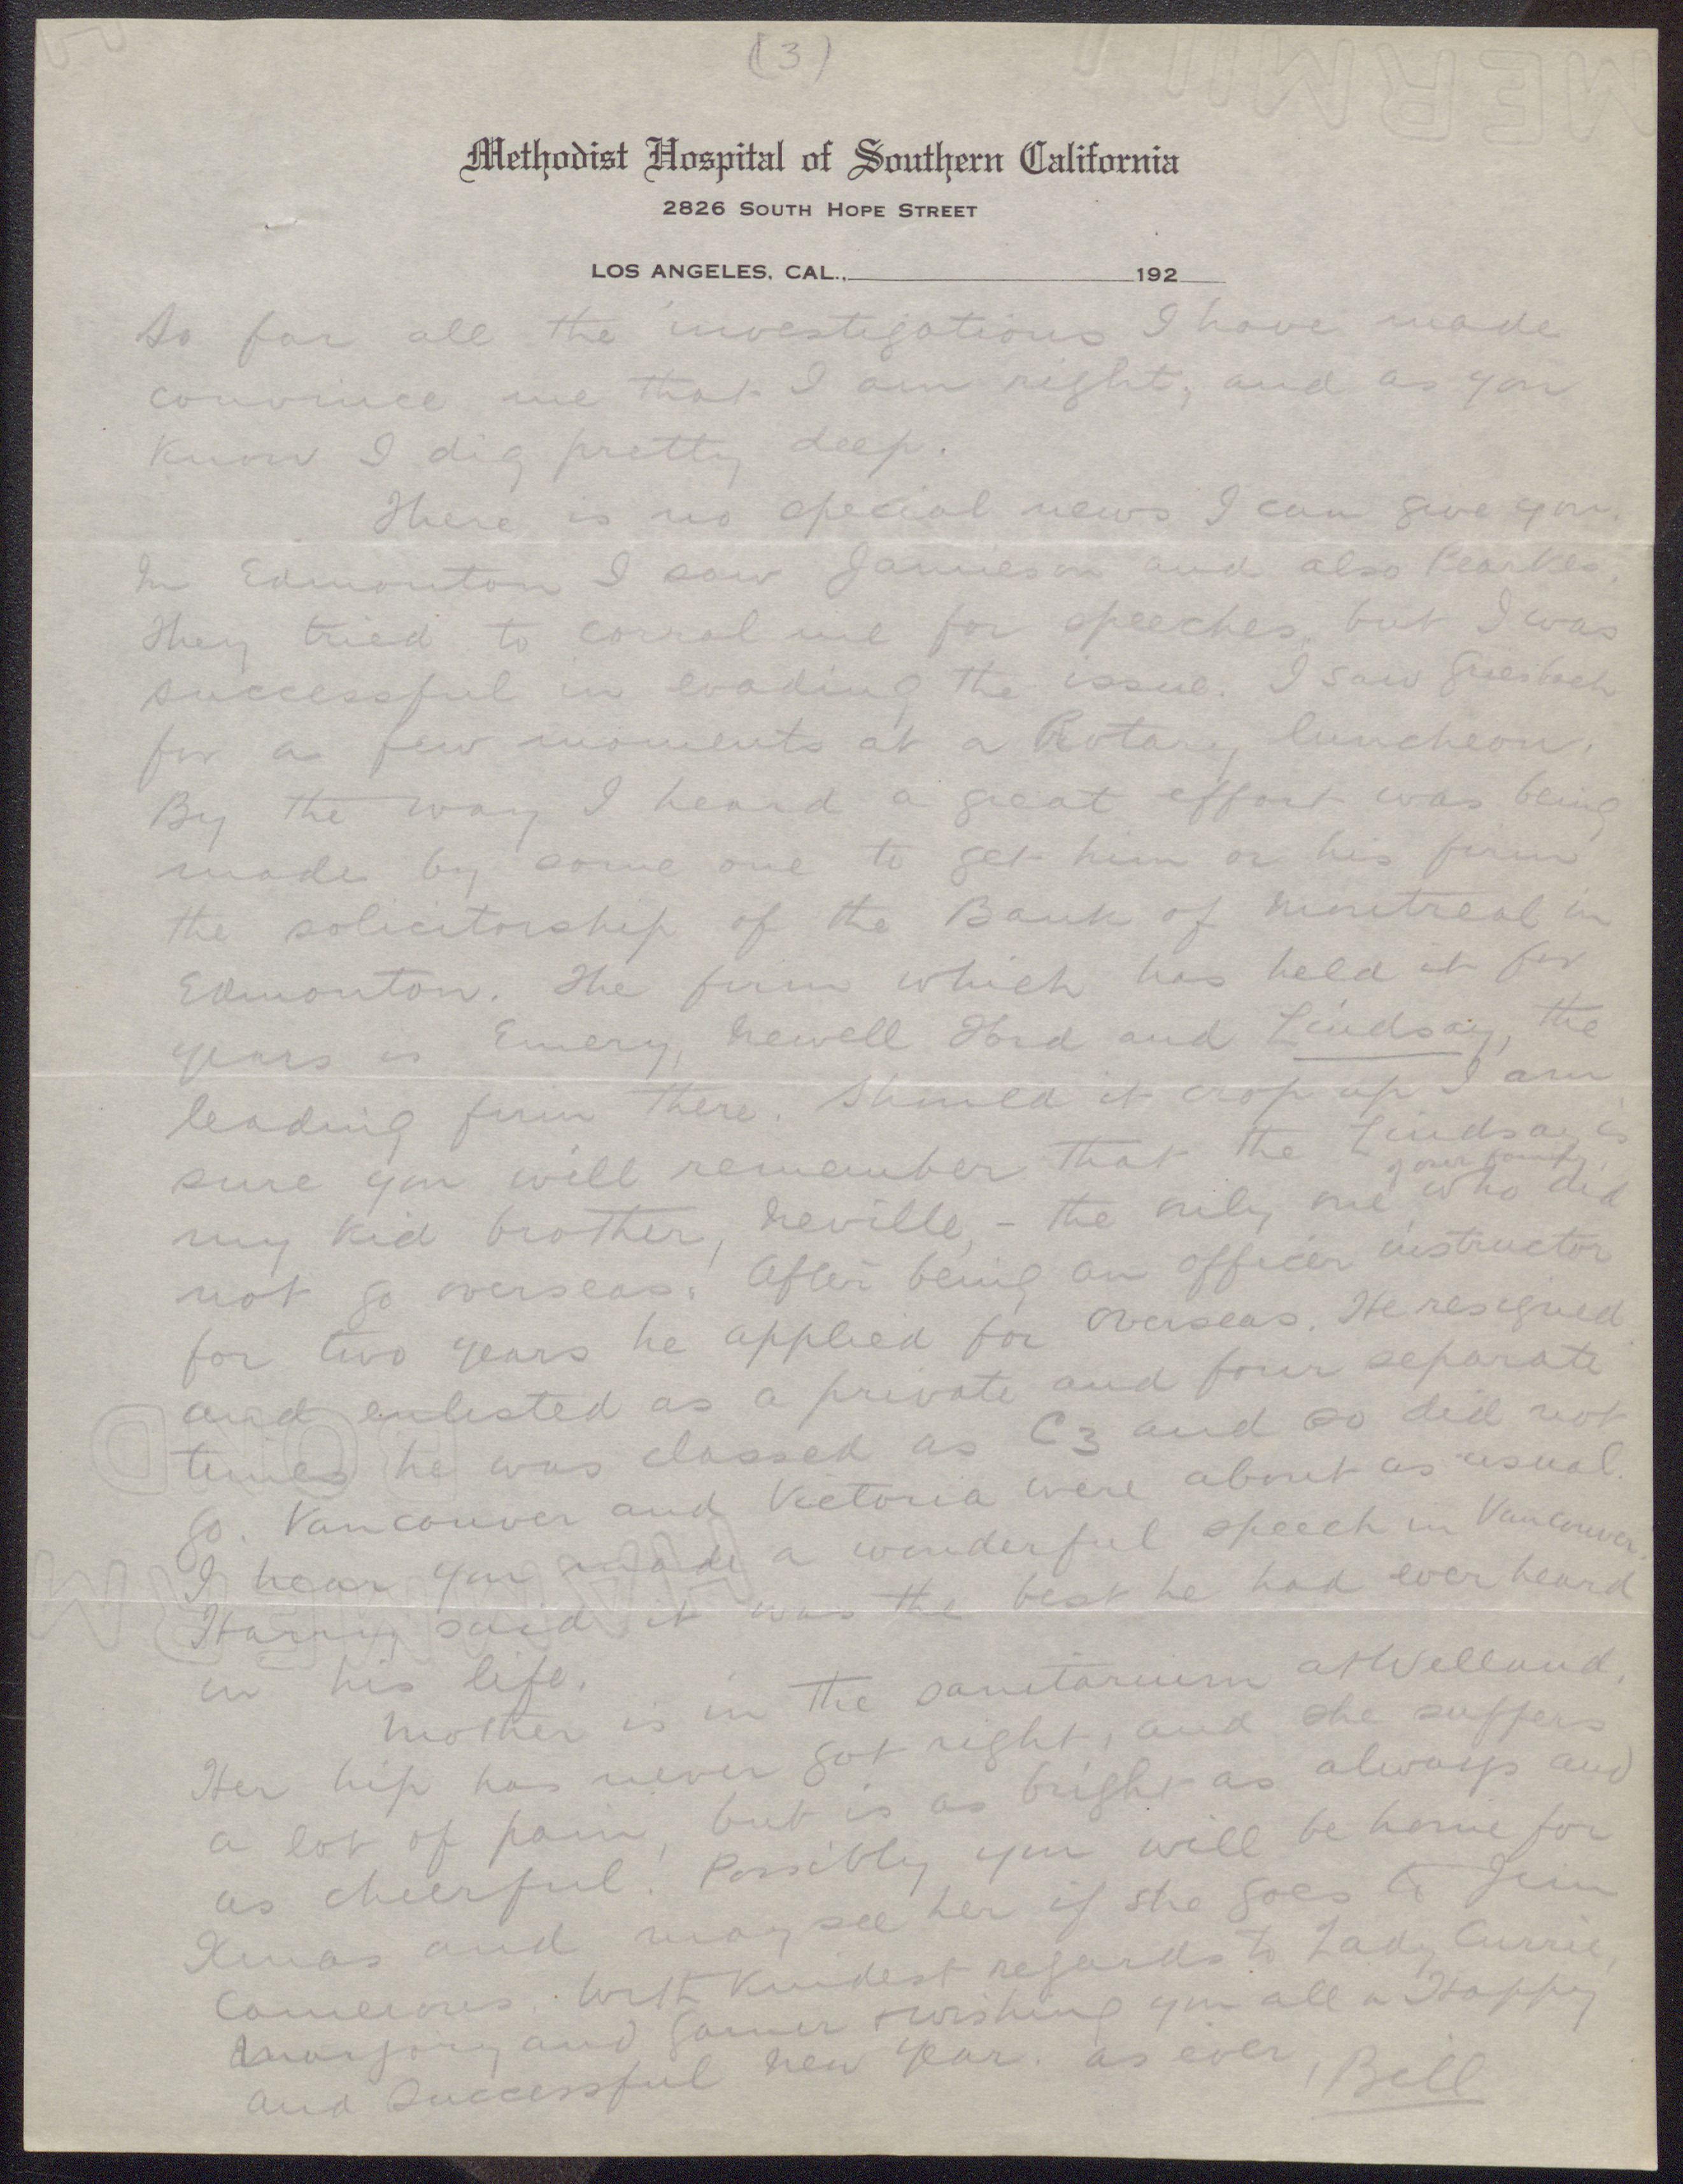 (3)
Methodist Hospital of Southern California
2826 SOUTH HOPE STREET
LOS ANGELES, CAL., 192
So far all the investigations I have made
convince me that I am right, and as you
know I dig pretty deep.
There is no special news I can give you.
In Edmonton I saw Jamieson and also Pearkes.
They tried to corral me for speeches, but I was
successful in evading the issue. I saw Griesbach
for a few moments at a Rotary luncheon.
By the way I heard a great effort was being
made by some one to get him or his firm
the solicitorship of the Bank of Montreal in
Edmonton. The firm which has held it for
years is Emery, Newell Ford and Lindsay, the
leading firm there. Should it crop up I am
sure you will remember that the Lindsay is
my kid brother, Neville, - the only one of our family who did
not go overseas. After being an officer instructor
for two years he applied for overseas. He resigned
and enlisted as a private and four separate
times he was classed as C3 and so did not
go. Vancouver and Victoria were about as usual.
I hear you made a wonderful speech in Vancouver.
Harry said it was the best he had ever heard
in his life.
Mother is in the sanitarium at Welland.
Her hip has never got right, and she suffers
a lot of pain, but is as bright as always and
as cheerful. Possibly you will be home for
Xmas and may see her if she goes to Jim
Camerons. With kindest regards to Lady Currie,
Marjory and Garner & wishing you all a Happy
and Successful New Year. as ever, Bill
HAMMERMILL
BOND